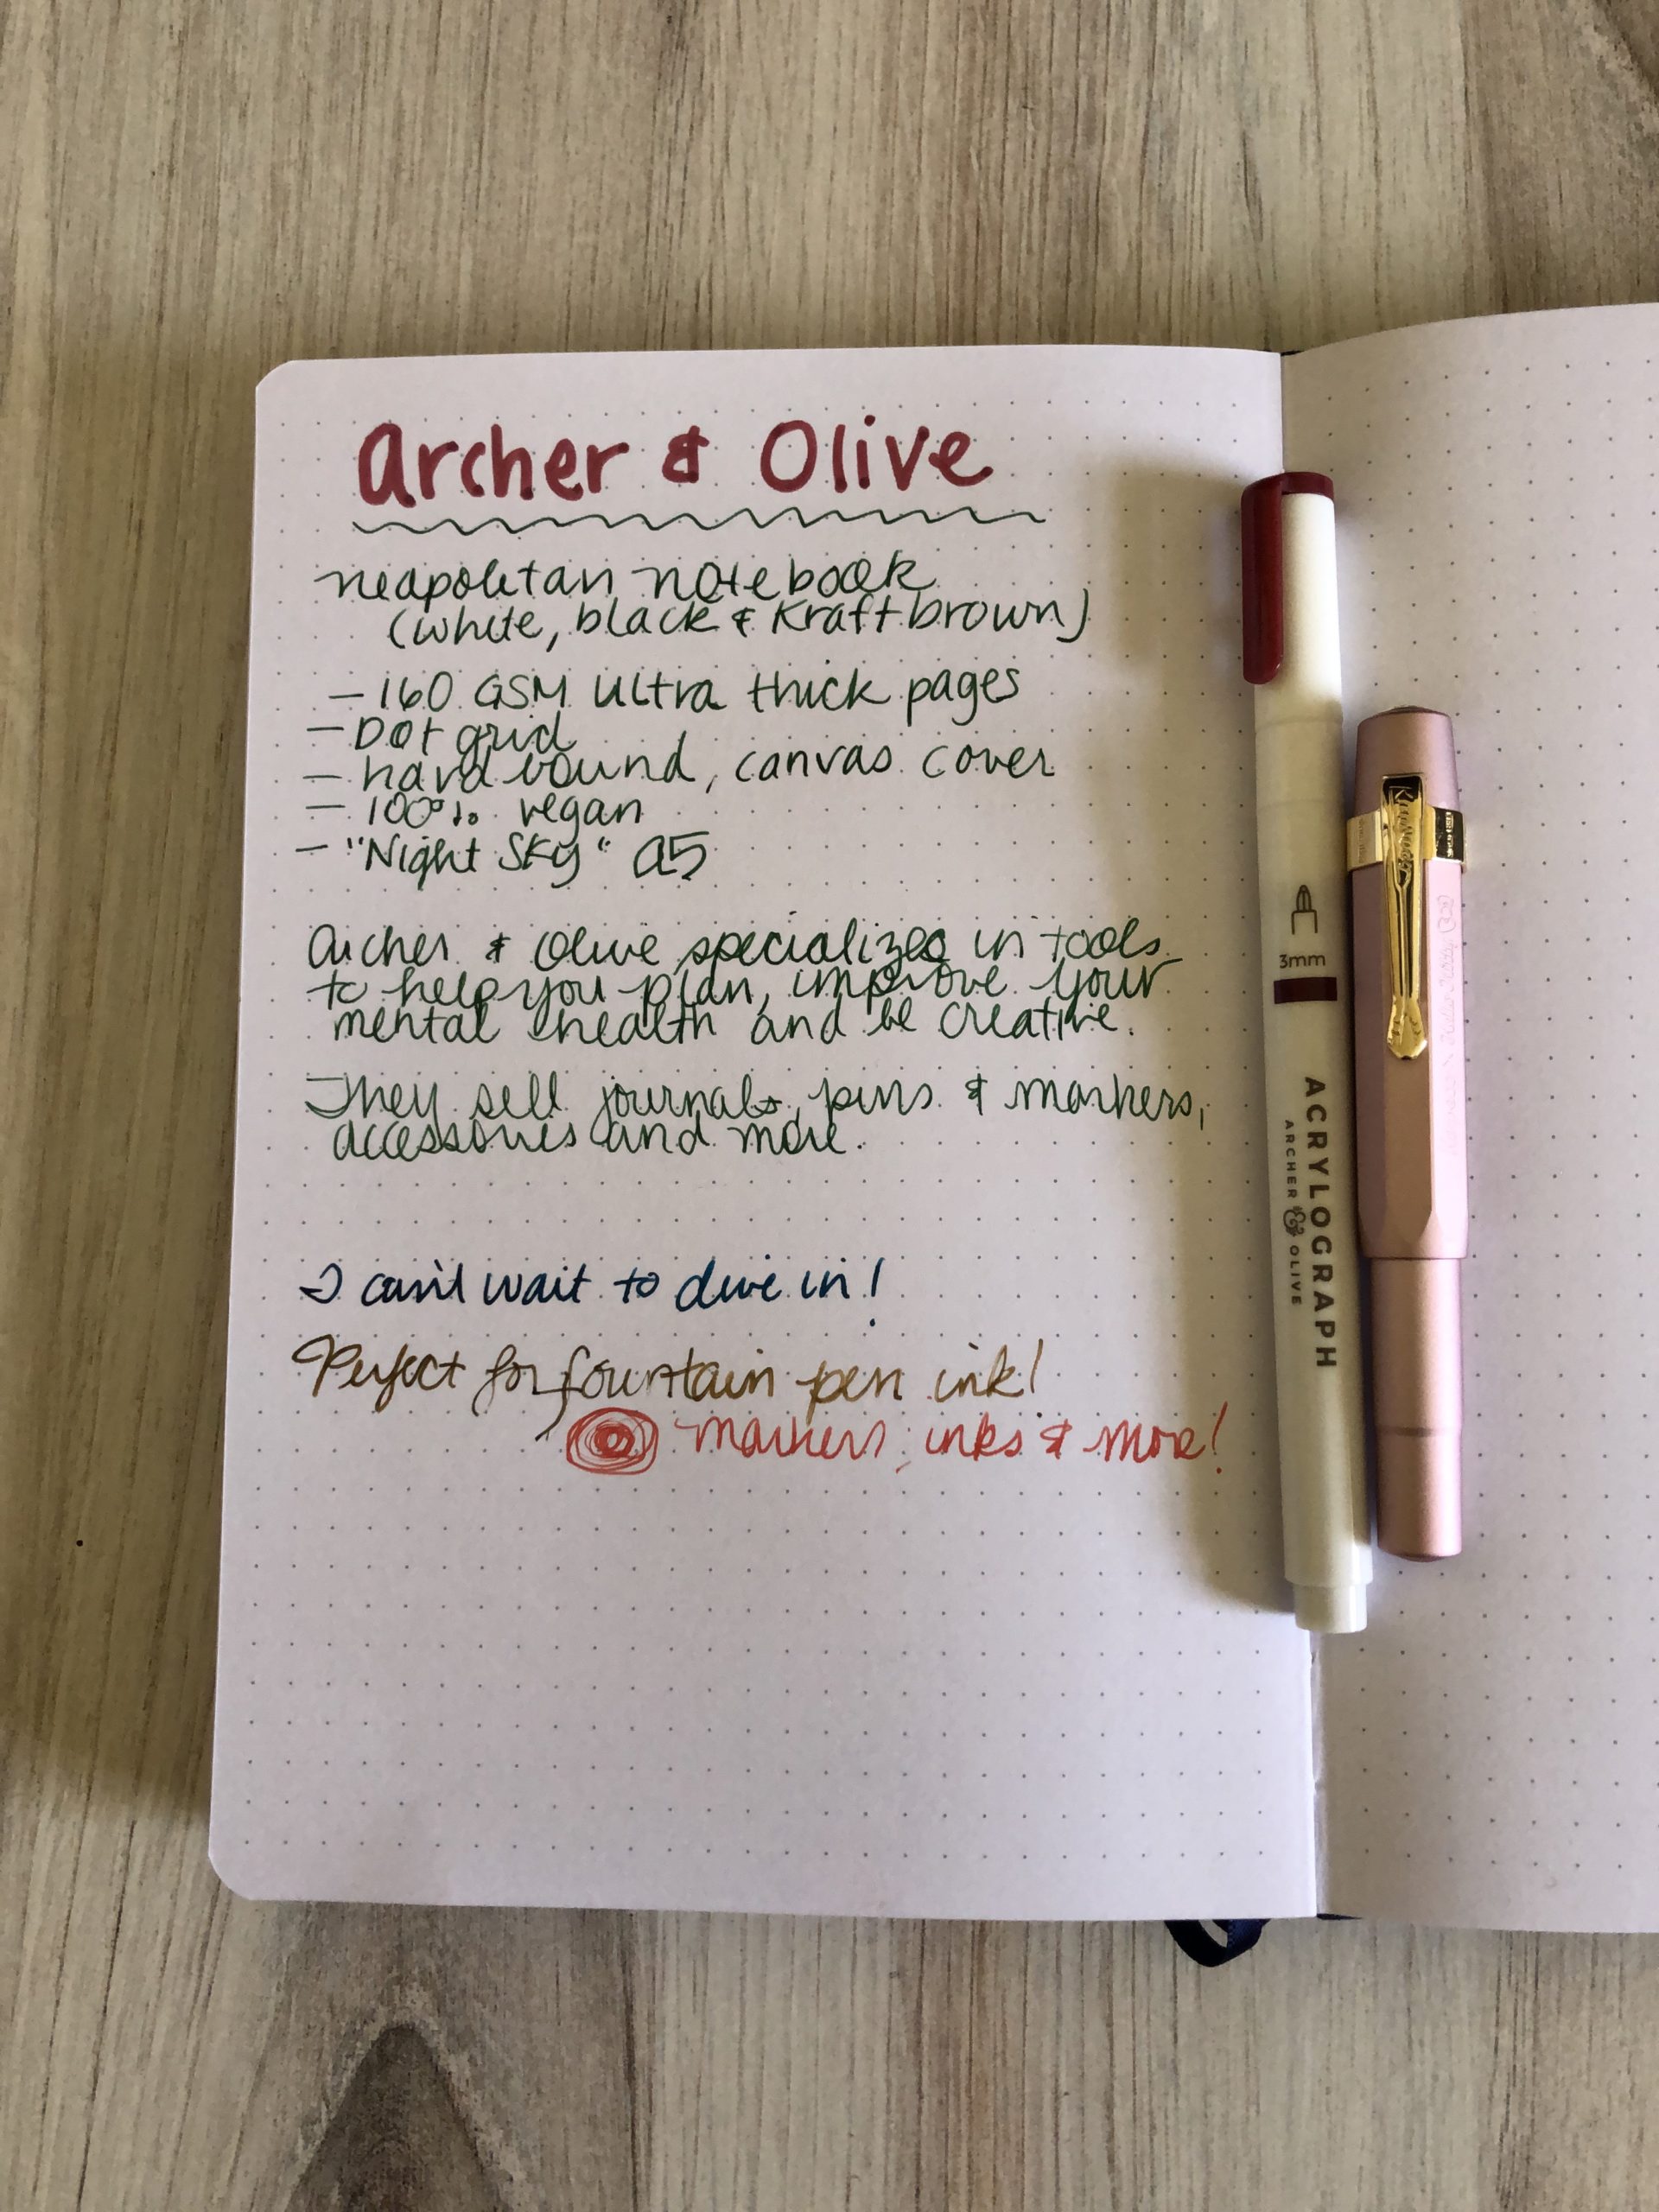 Archer & Olive
neapolitan notebook
(white, black & Kraft brown)
- 160 GSM Ultra thick pages
- Dot grid
- hard bound, canvas cover
- 100% vegan
- "Night Sky" A5
Archer & Olive specializes in tools
to help you plan, improve your
mental health and be creative.
They sell journals, pens & markers,
accessories and more.
I can't wait to dive in!
Perfect for fountain pen ink!
markers, inks & more!
3mm
ACRYLOGRAPH
ARCHER & OLIVE
Kaweco